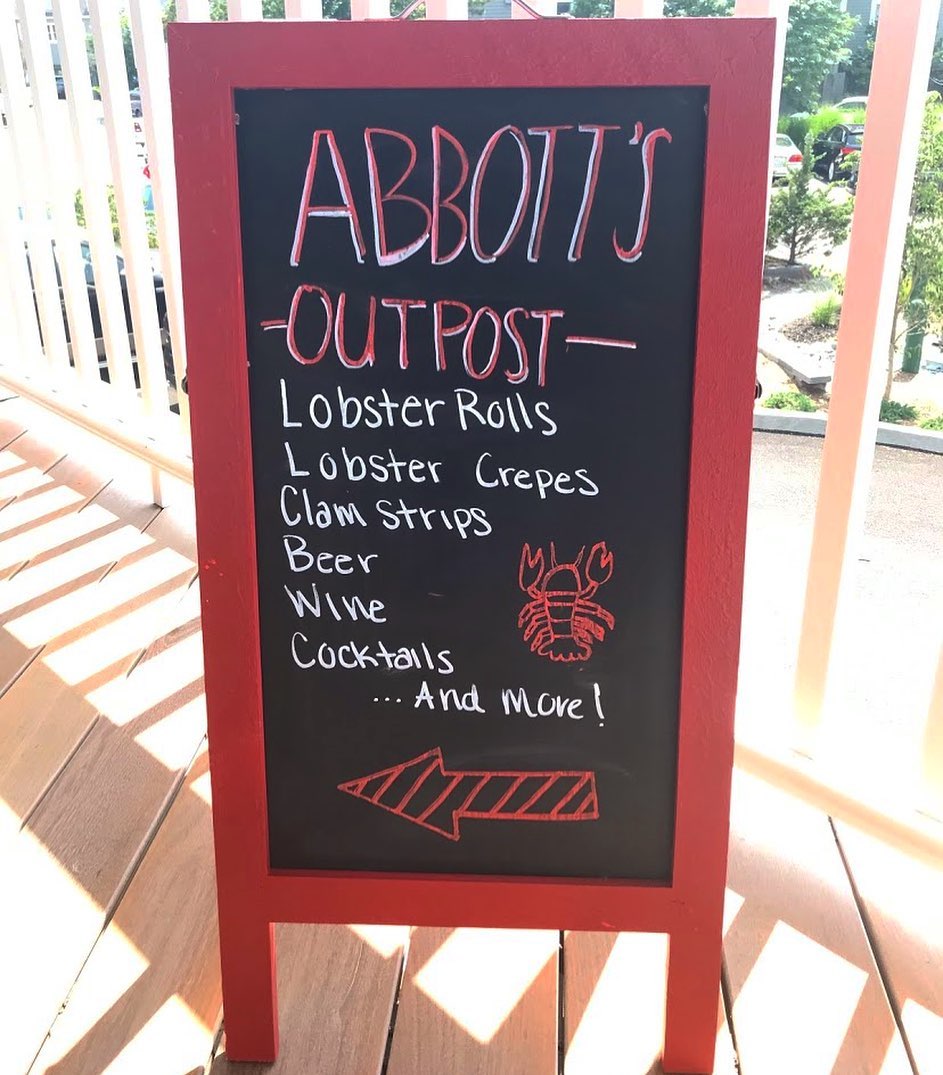 ABBOTT'S
-OUTPOST-
Lobster Rolls
Lobster Crepes
Clam Strips
Beer
Wine
Cocktails
...And More!